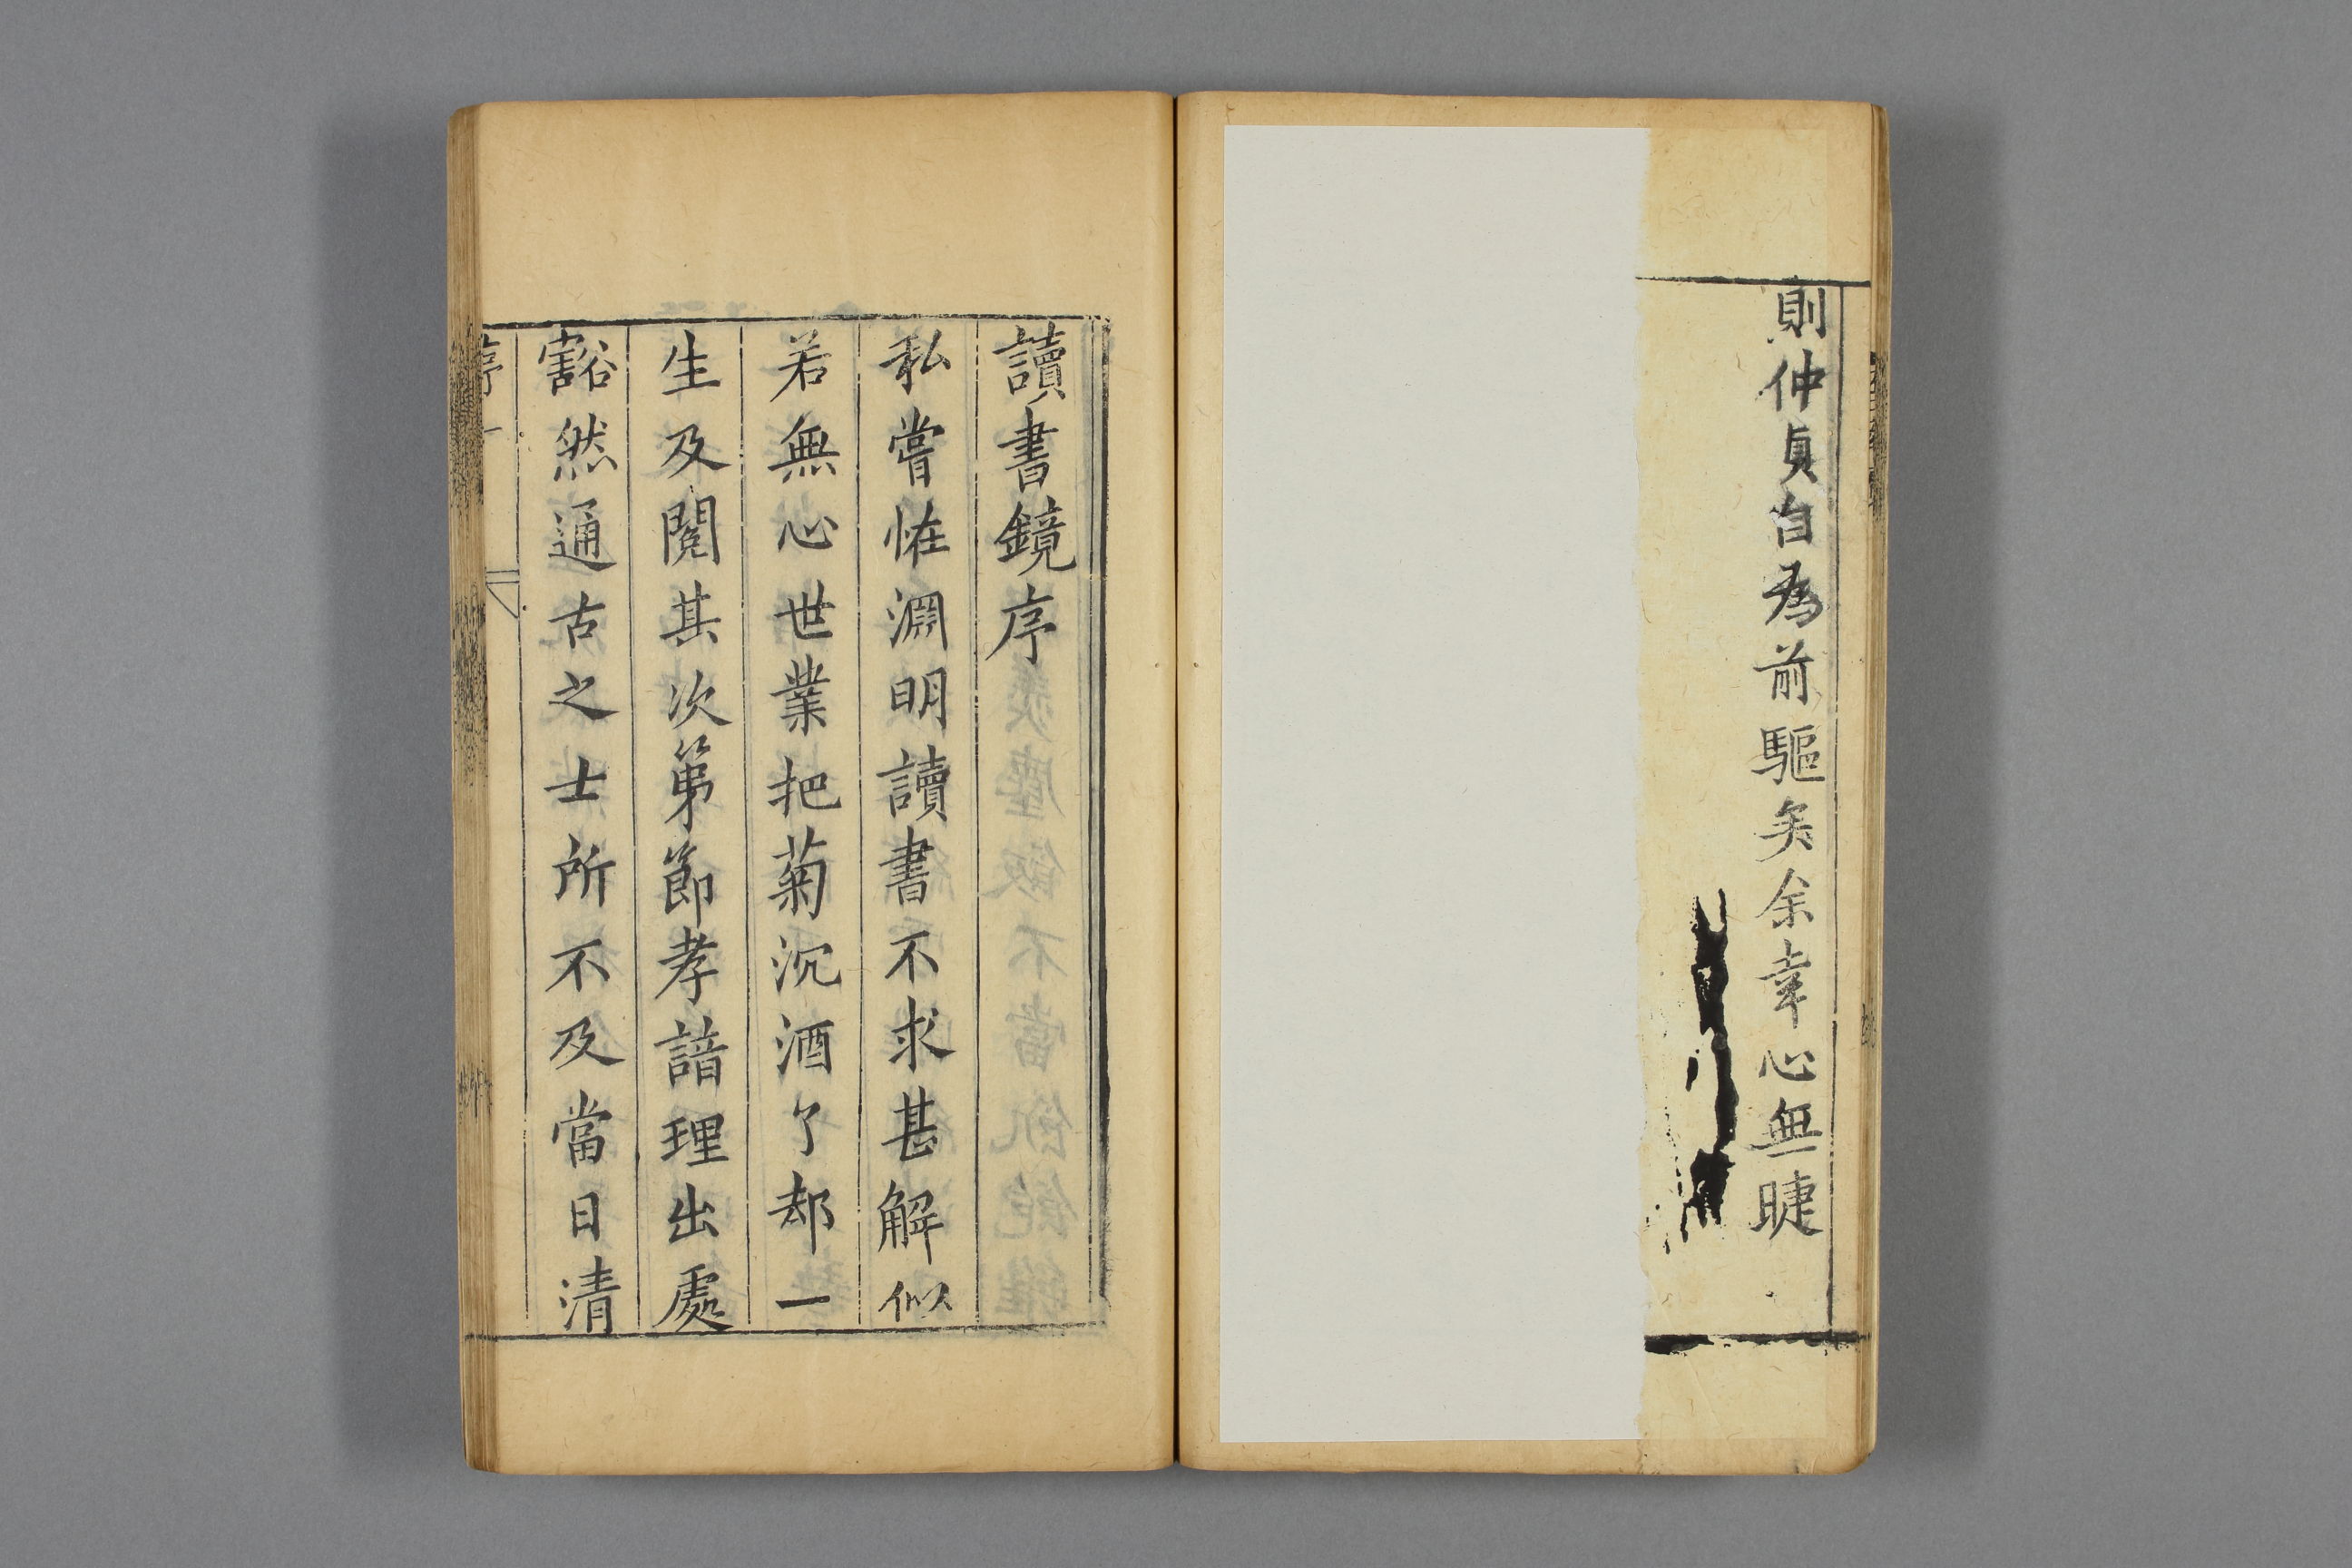 則仲貞自為前驅矣余幸心無睫
讀書鏡序
私嘗恠淵明讀書不求甚解似
若無心世業把菊沉酒了却一
生及閱其次第節孝諳理出處
豁然通古之士所不及當日清
序 一